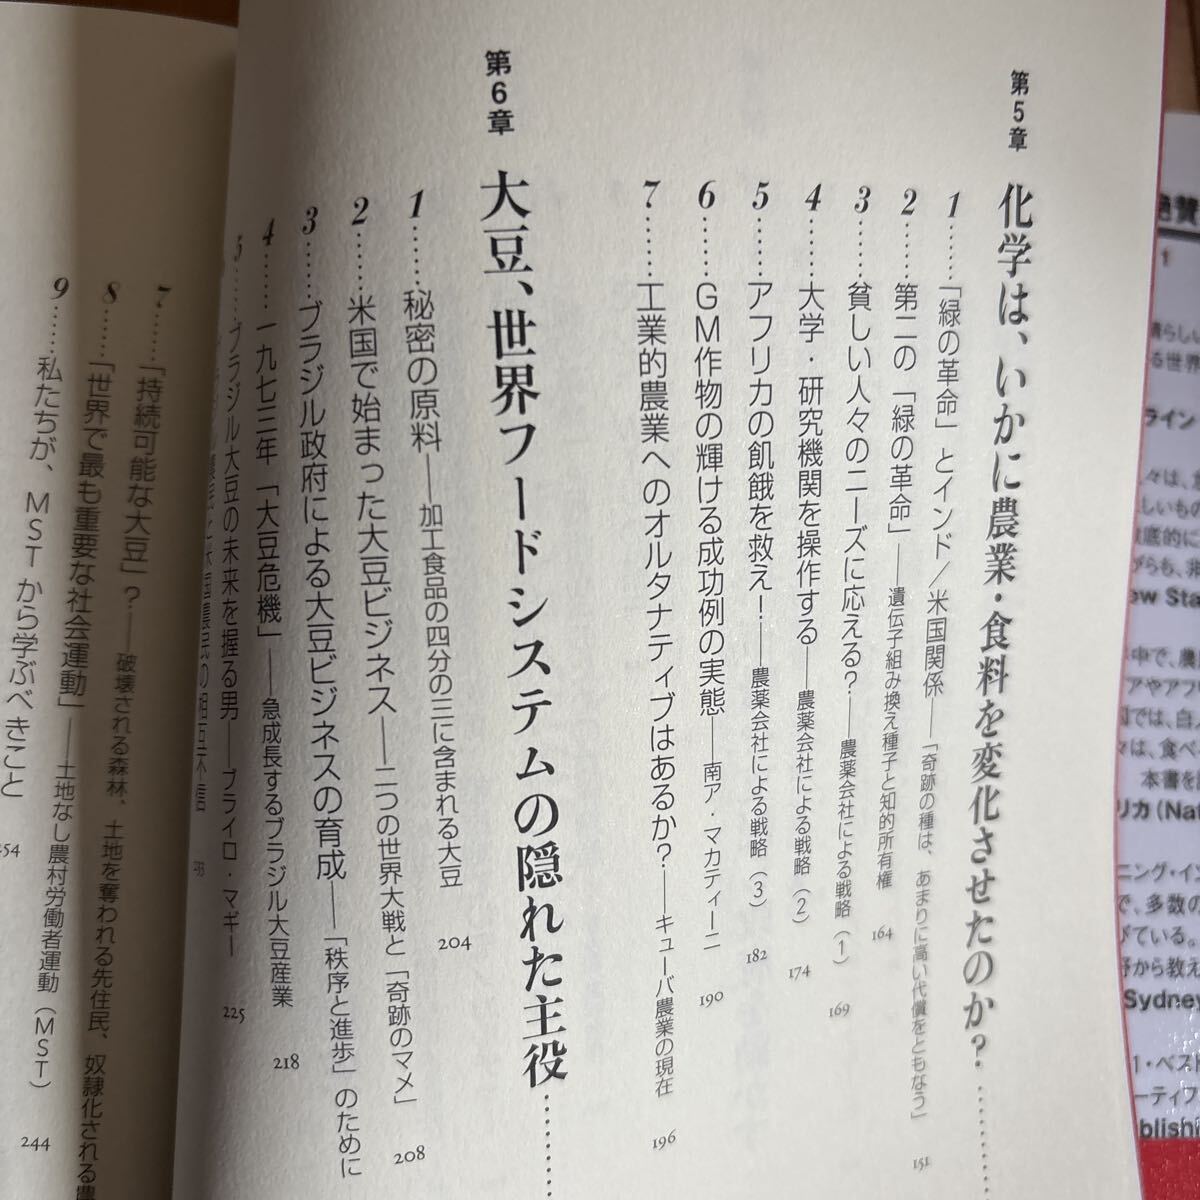 第5章 化学は、いかに農業・食料を変化させたのか？…………
1……「緑の革命」とインド／米国関係――「奇跡の種は、あまりに高い代償をともなう」 151
2……第二の「緑の革命」――遺伝子組み換え種子と知的所有権 164
3……貧しい人々のニーズに応える？――農薬会社による戦略（1） 169
4……大学・研究機関を操作する――農薬会社による戦略（2） 174
5……アフリカの飢餓を救え！――農薬会社による戦略（3） 182
6……GM作物の輝ける成功例の実態――南ア・マカティーニ 190
7……工業的農業へのオルタナティブはあるか？――キューバ農業の現在 196
第6章 大豆、世界フードシステムの隠れた主役…………
1……秘密の原料――加工食品の四分の三に含まれる大豆 204
2……米国で始まった大豆ビジネス――二つの世界大戦と「奇跡のマメ」 208
3……ブラジル政府による大豆ビジネスの育成――「秩序と進歩」のために
4……一九七三年「大豆危機」――急成長するブラジル大豆産業 218
5……ブラジル大豆の未来を握る男――ブライロ・マギー 225
農民と米国農民の相互不信
7……「持続可能な大豆」？――破壊される森林、土地を奪われる先住民、奴隷化される農
8……「世界で最も重要な社会運動」――土地なし農村労働者運動（MST） 244
9……私たちが、MSTから学ぶべきこと 254
絶賛
1
ライン
ew Sta
本書を
リカ（Na
ニング・イン
で、多数の
げている。
野から教え
Sydney
1・ベスト
ーティフ
blishi